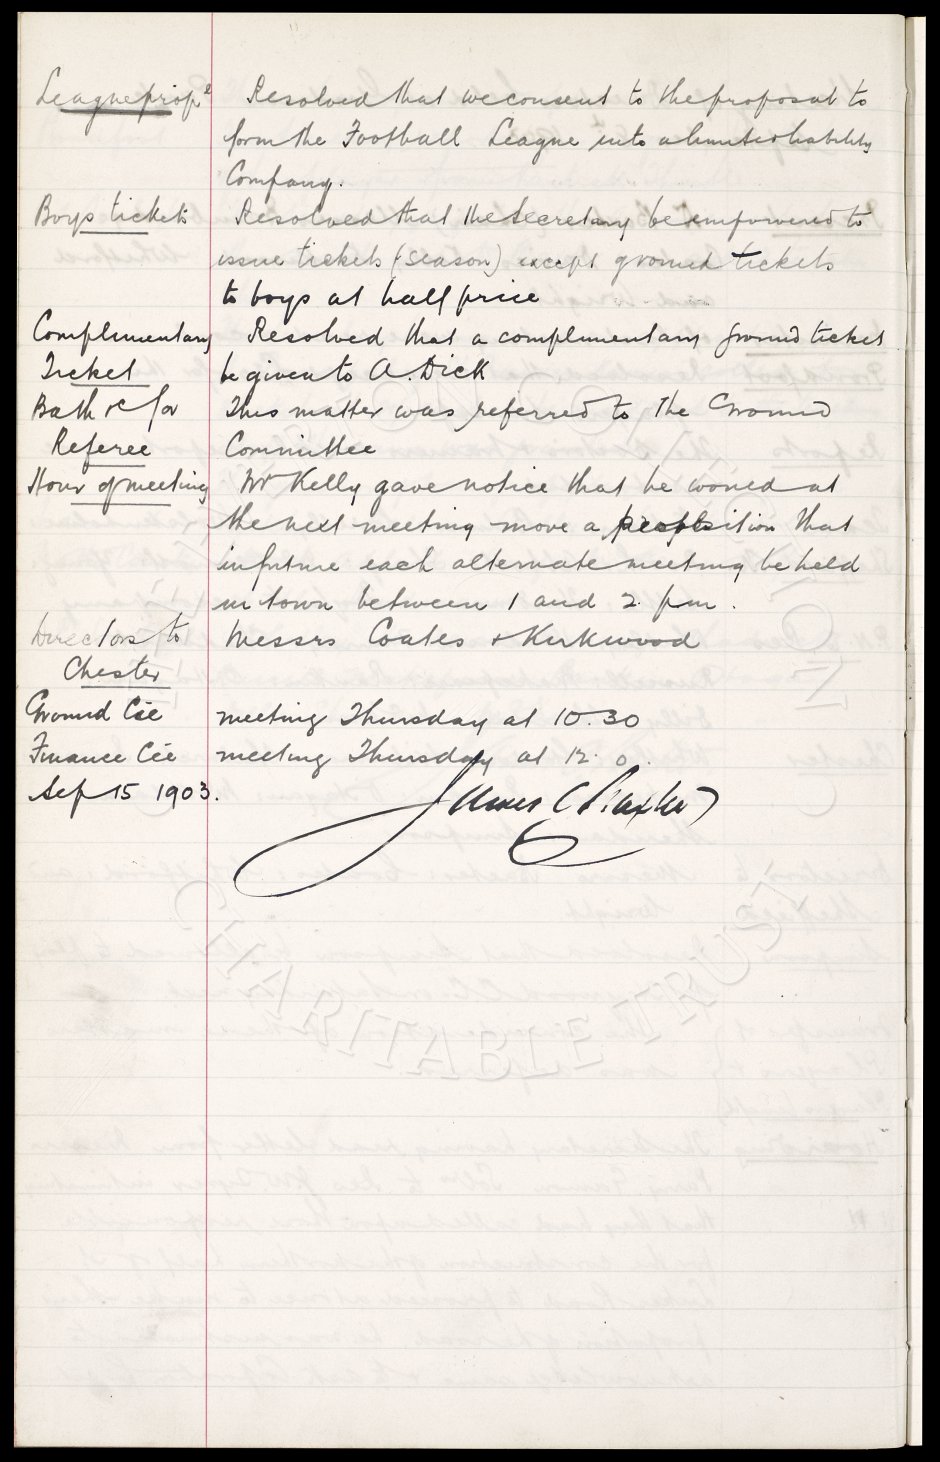 League prop^l Resolved that we consent to the proposal to
form the Football League into a limited liability
Company.
Boys tickets Resolved that the Secretary be empowered to
issue tickets (season) except ground tickets
to boys at half price
Complimentary Resolved that a complimentary ground ticket
Ticket be given to A. Dick
Bath &c for This matter was referred to the Ground
Referee Committee
Hour of meeting Mr Kelly gave notice that he would at
the next meeting move a proposition that
in future each alternate meeting be held
in town between 1 and 2 pm.
Directors to Messrs Coates & Kirkwood
Chester
Ground Cie meeting Thursday at 10.30
Finance Cie meeting Thursday at 12.0.
Sep 15 1903. James C Baxter
CHARITABLE TRUST